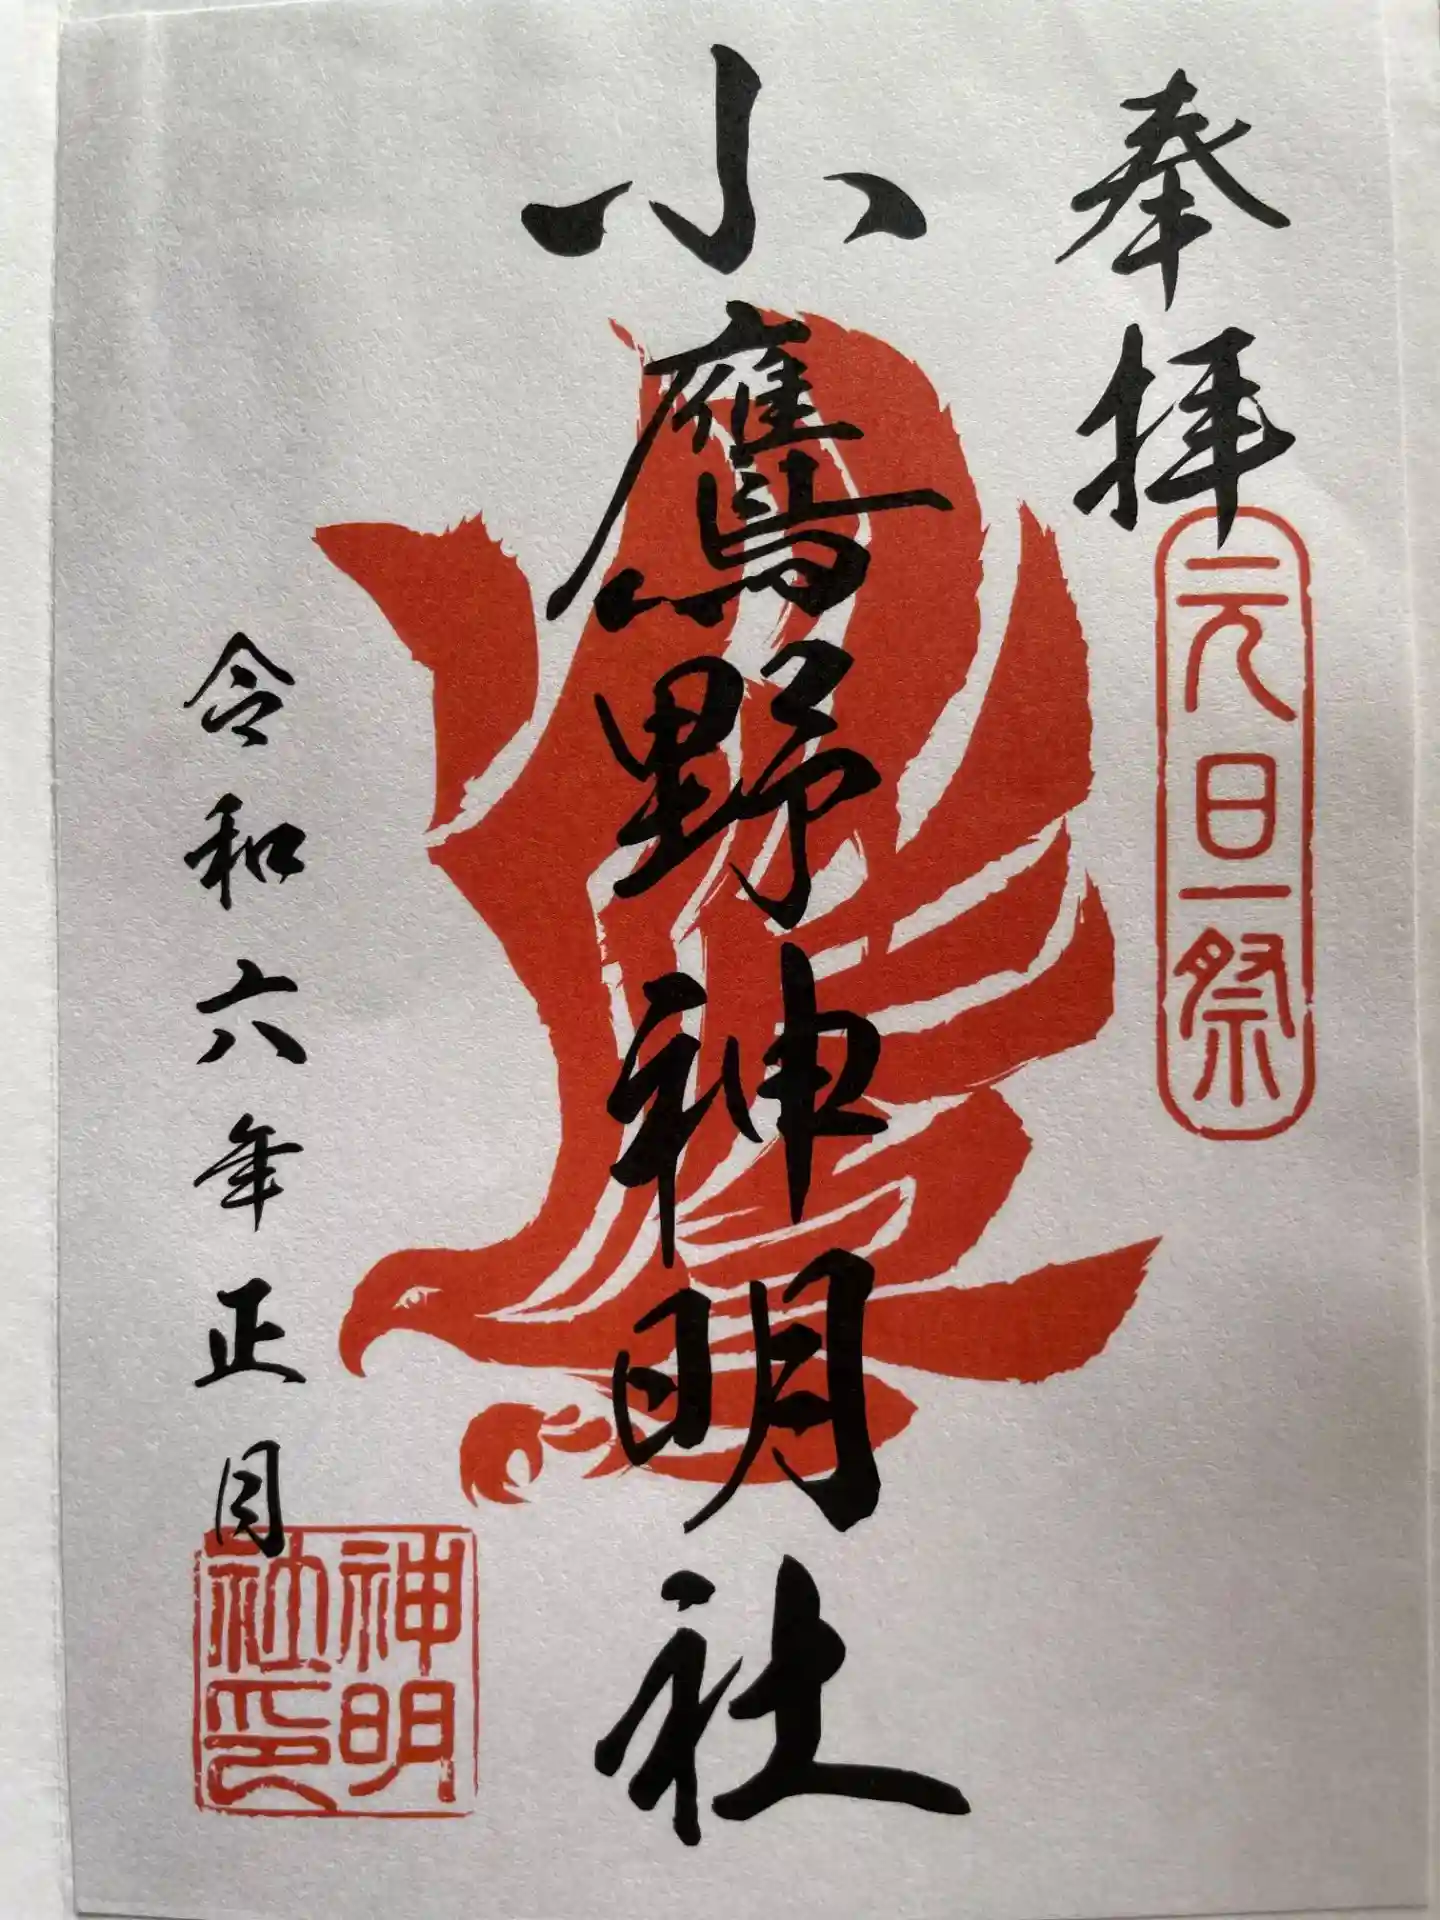 奉拝
元旦祭
小鷹野神明社
令和六年正月
神明
社印